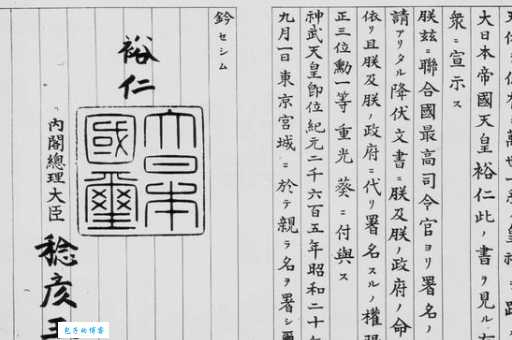 萬世一系ノ皇祚ヲ
大日本帝國天皇裕仁此ノ書ヲ見ル
衆ニ宣示ス
朕茲ニ聯合國最高司令官ヨリ署名ノ
請アリタル降伏文書ニ朕及朕ノ政府ノ命
依リ且朕及朕ノ政府ニ代リ署名スルノ權
正三位勳一等重光葵ニ付與ス
神武天皇卽位紀元二千六百五年昭和二十
九月一日東京宮城ニ於テ親ラ名ヲ署シ
鈐セシム
裕仁
大日本國璽
內閣總理大臣稔彥王
包子的博客